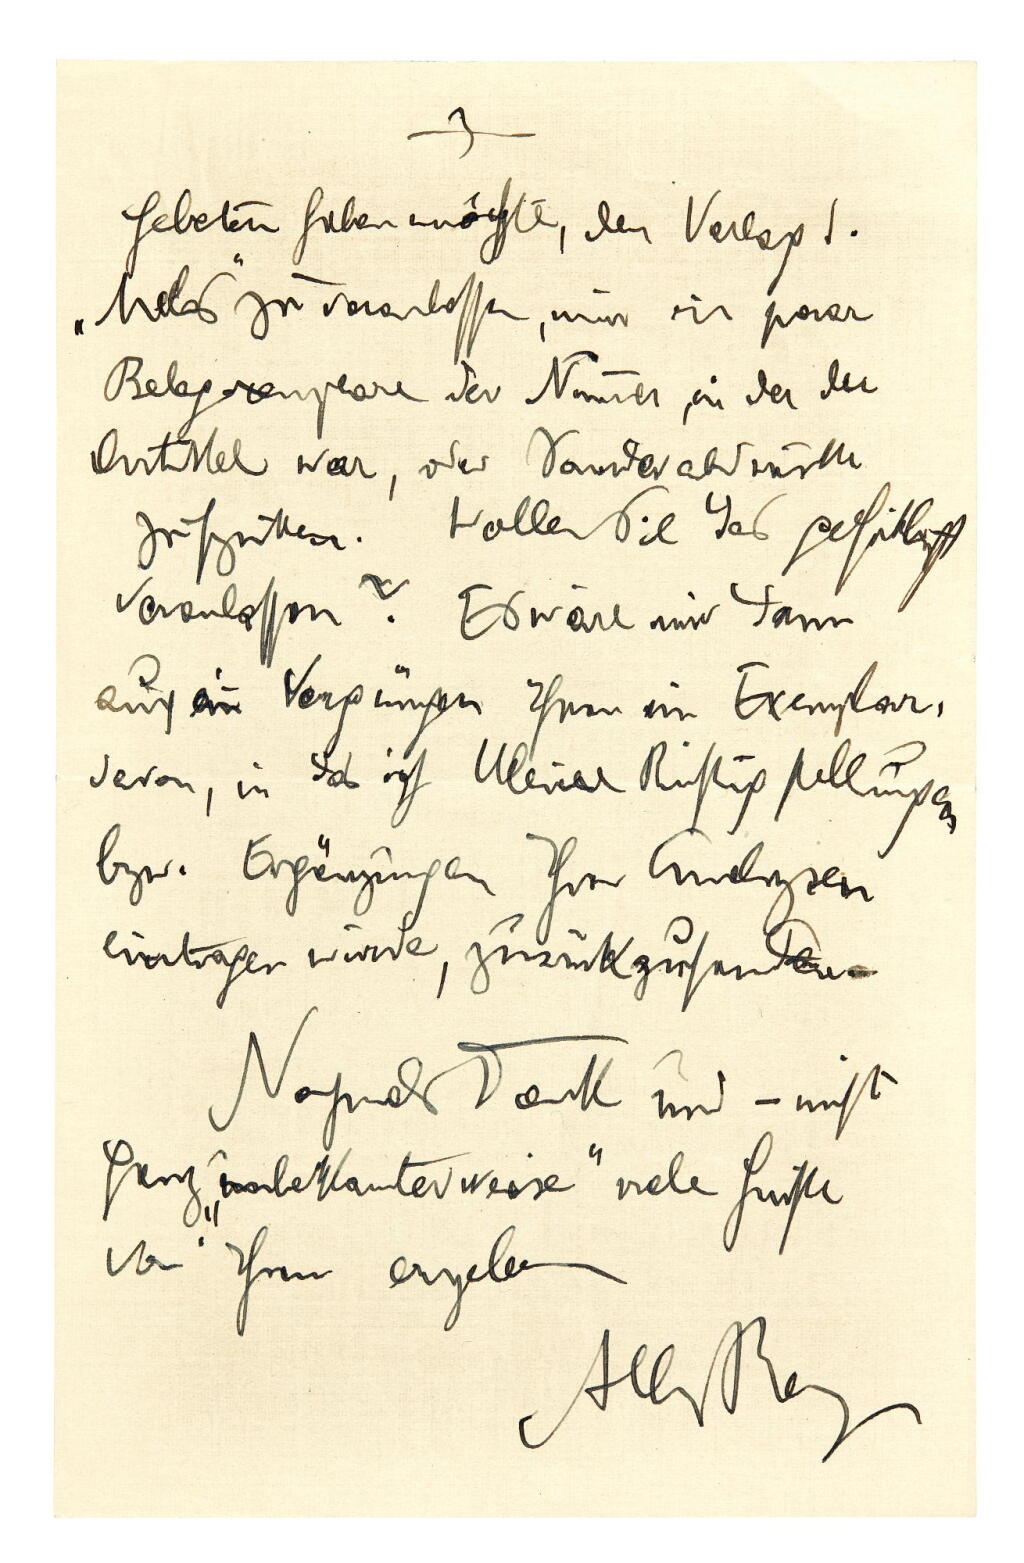 3
gebeten haben möchte, den Verlag d.
„Melos" zu veranlassen, mir ein paar
Belegexemplare der Numer, in der der
Artikkel war, oder Sonderabdrücke
zu schicken. Wollen Sie das gefälligst
veranlassen? Es wäre mir dann
auch ein Vergnügen Ihnen ein Exemplar
davon, in das ich kleine Richtigstellungen
bzw. Ergänzungen Ihrer Analysen
eintragen würde, zurückzusenden –
Nochmals Dank und – nicht
ganz „unbekannterweise" viele Grüße
von Ihrem ergebenen
Alban Berg